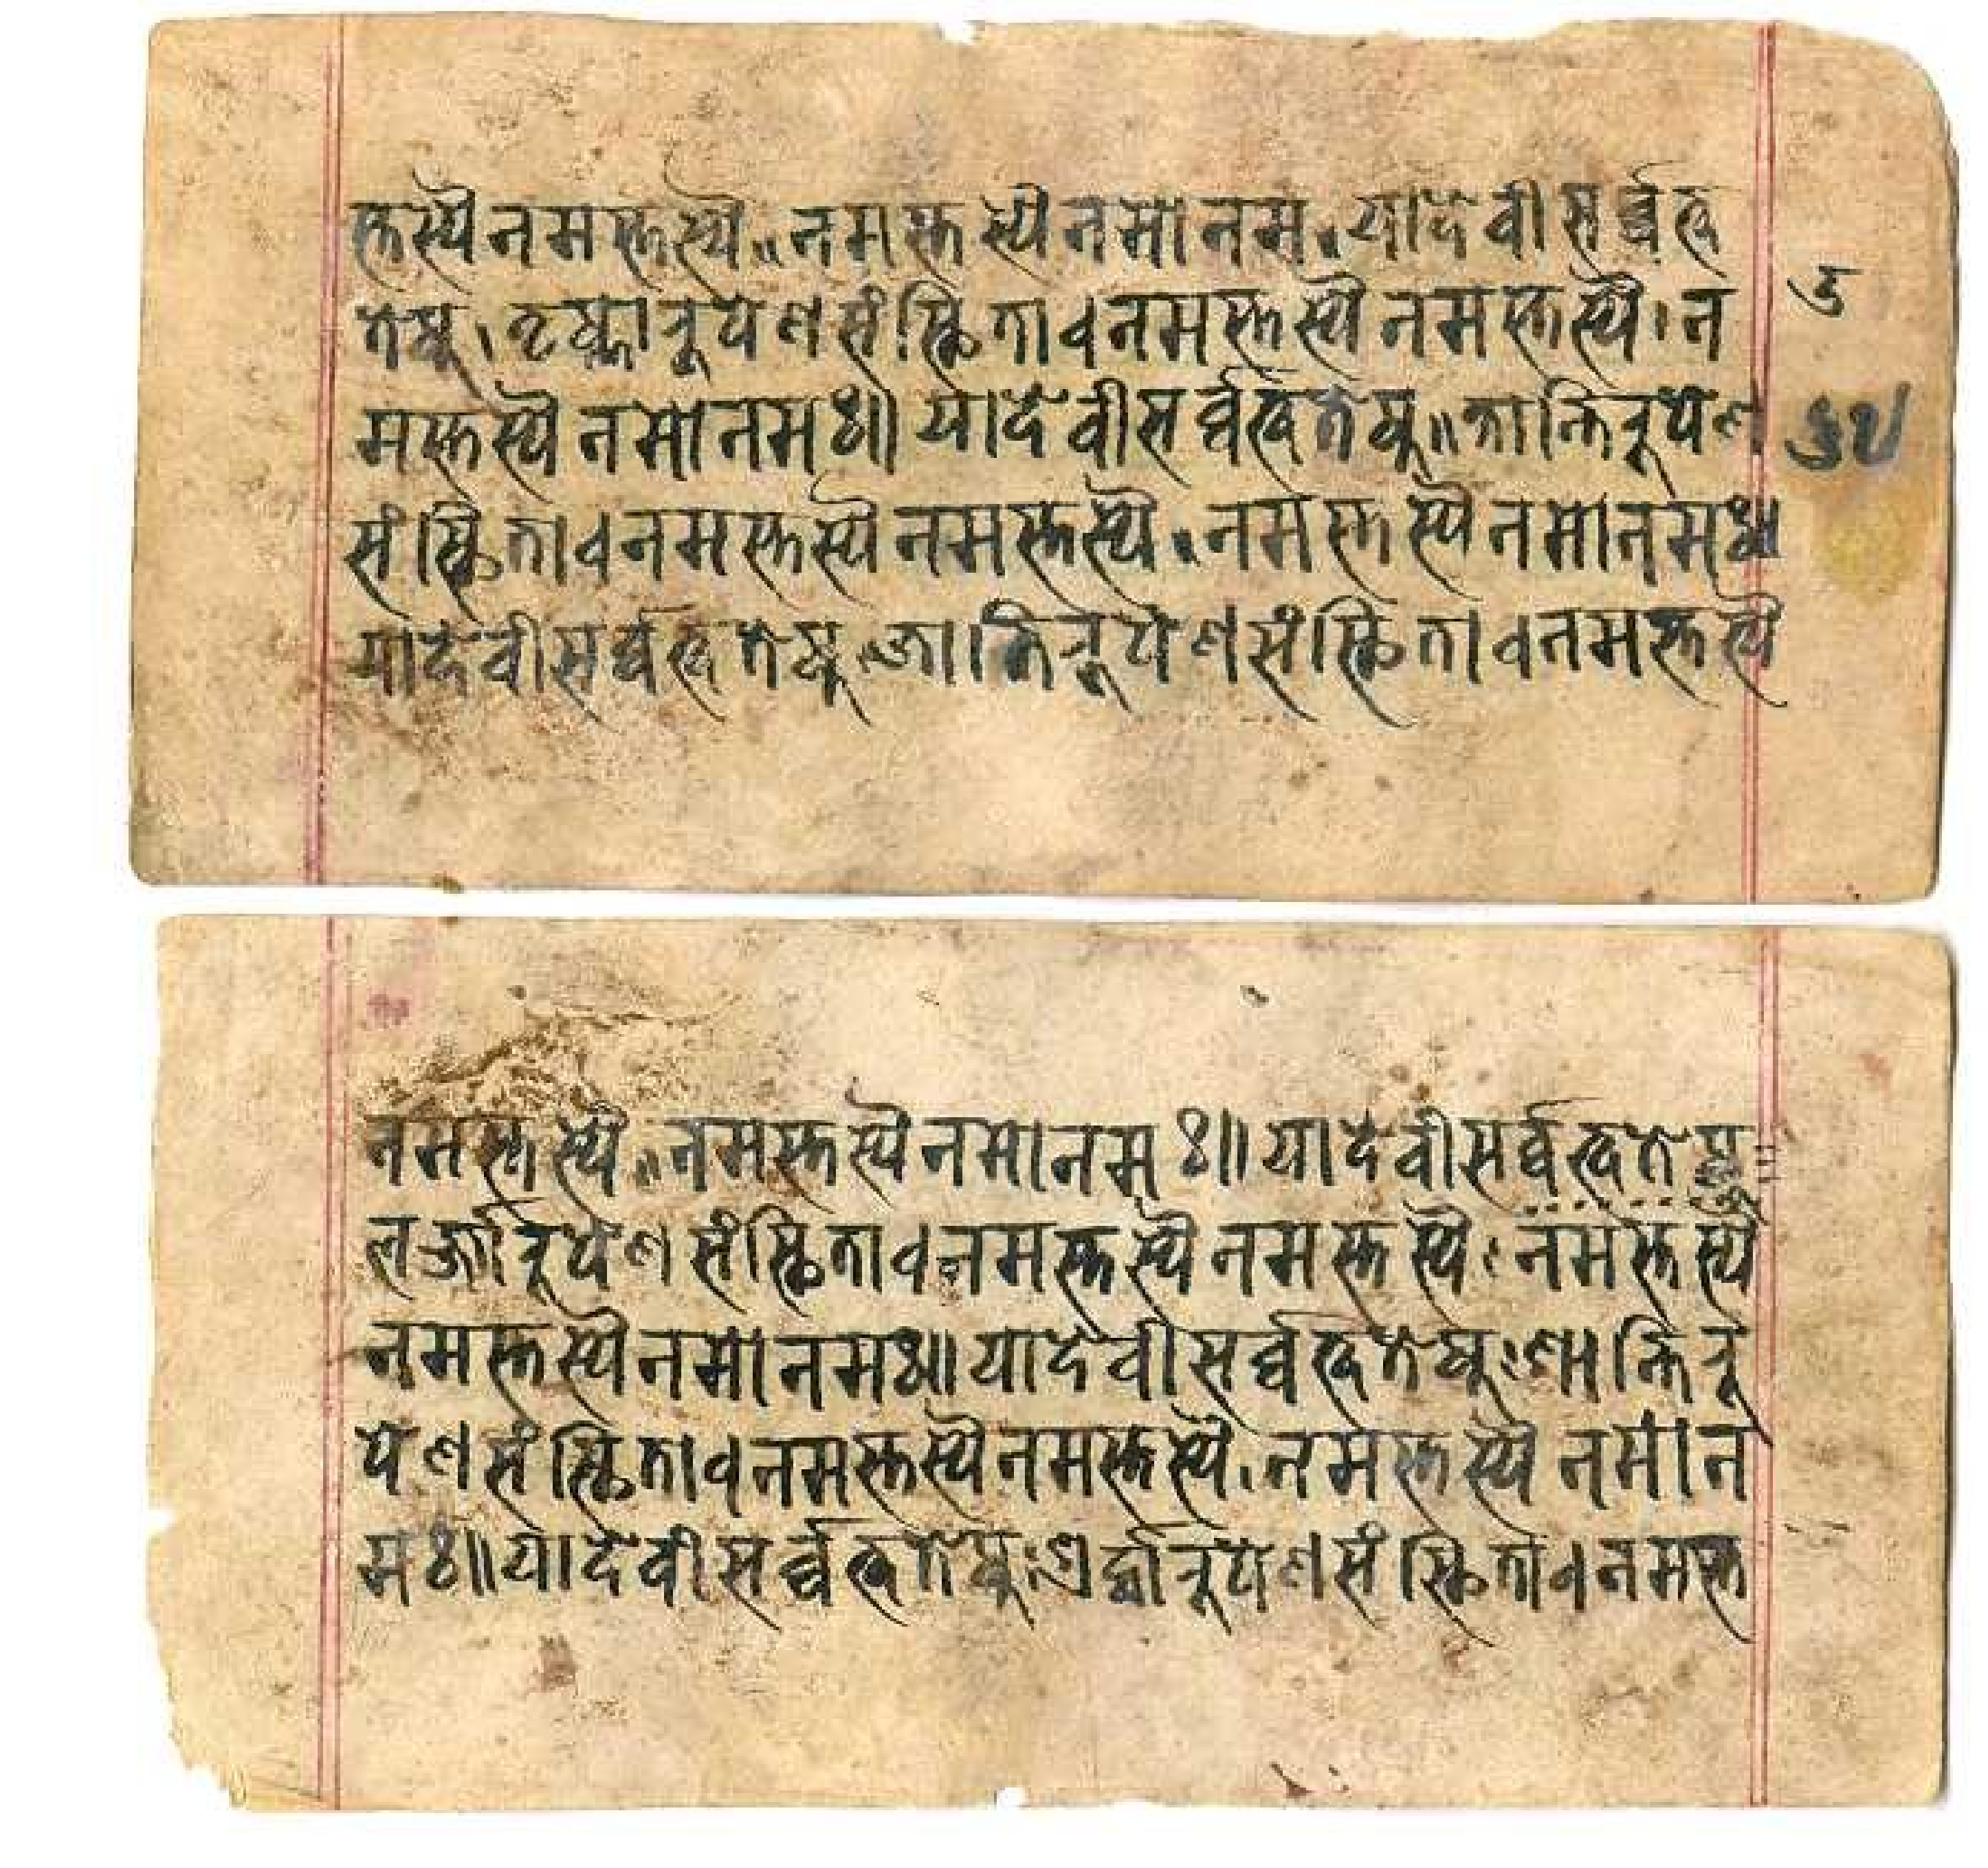 स्तस्यै नमस्तस्यै ॥ नमस्तस्यै नमो नम । या देवी सर्व्वभू
तेषू । तृष्णारूपेण संस्थिता व नमस्तस्यै नमस्तस्यै । न
मस्तस्यै नमो नमः ॥ या देवी सर्व्वभूतेषू ॥ क्षान्तिरूपेण
संस्थिता व नमस्तस्यै नमस्तस्यै । नमस्तस्यै नमो नमः ॥
या देवी सर्व्वभूतेषू जातिरूपेण संस्थिता व नमस्तस्यै
नमस्तस्यै ॥ नमस्तस्यै नमो नमः ॥ या देवी सर्व्वभूतेषू
लज्जारूपेण संस्थिता व नमस्तस्यै नमस्तस्यै : नमस्तस्यै
नमस्तस्यै नमो नमः ॥ या देवी सर्व्वभूतेषू : शान्तिरू
पेण संस्थिता व नमस्तस्यै नमस्तस्यै । नमस्तस्यै नमो न
मः ॥ या देवी सर्व्वभूतेषू : श्रद्धारूपेण संस्थिता व नमस्त